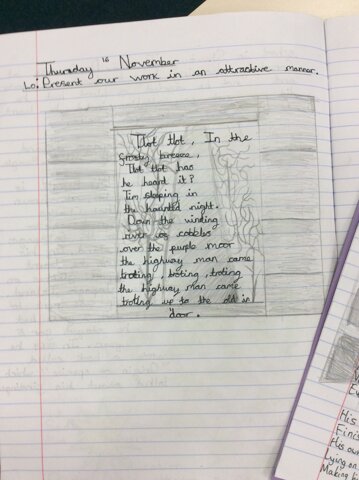 Thursday 16 November
Lo: Present our work in an attractive manner.
Tlot Tlot, In the
frosty breeze,
Tlot tlot has
he heard it?
Tim sleping in
the haunted night.
Down the winding
river of cobbles
over the purple moor
the highway man came
troting, troting, troting
the highway man came
troting up to the old in
door.
His
Finis
His ow
Lying on
Making h